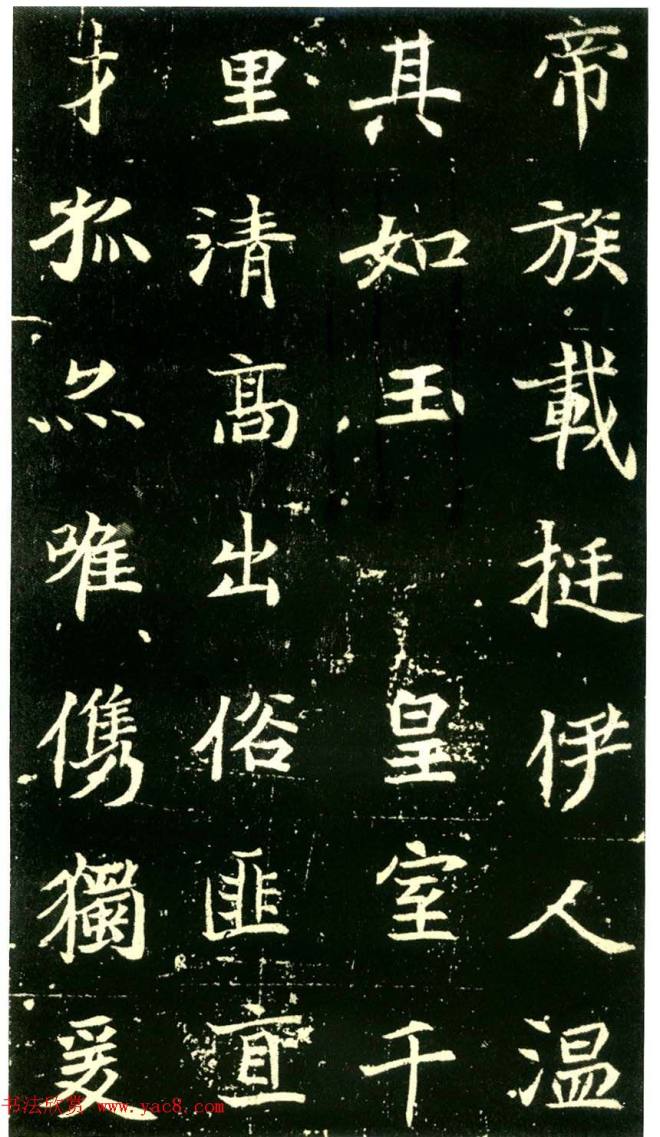 帝族載挺伊人温
其如玉 皇室千
里清髙出俗匪直
才孤亦唯儁獨爰
书法欣赏 www.yac8.com